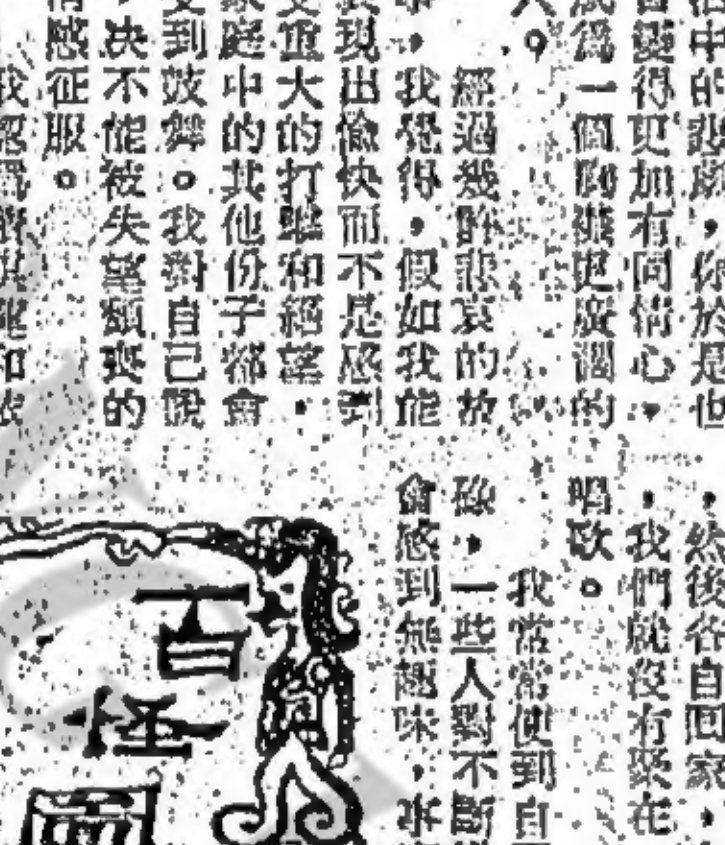 活中的悲劇，你於是也
會變得更加有同情心，
成爲一個胸襟更廣濶的
人。
經過幾許悲哀的故
事，我覺得，假如我能
表現出愉快而不是感到
受重大的打擊和絕望，
家庭中的其他份子都會
受到鼓舞。我對自己說
，决不能被失望頹喪的
情感征服。
我認爲
，然後各自回家，
，我們就沒有聚在
唱歌。
我常常使到自
礙，一些人對不斷
會感到無趣味，事
百怪圖